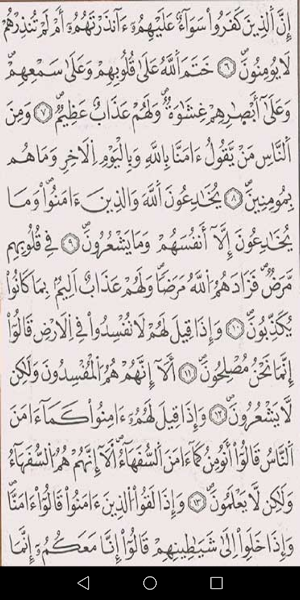 إِنَّ ٱلَّذِينَ كَفَرُواْ سَوَآءٌ عَلَيْهِمُۥٓ ءَآنذَرْتَهُمُۥٓ أَمْ لَمْ تُنذِرْهُمْ
لَا يُومِنُونَ ٦ خَتَمَ ٱللَّهُ عَلَىٰ قُلُوبِهِمْ وَعَلَىٰ سَمْعِهِمْ
وَعَلَىٰٓ أَبْصَٰرِهِمْ غِشَٰوَةٌ وَلَهُمْ عَذَابٌ عَظِيمٌ ٧ وَمِنَ
ٱلنَّاسِ مَنْ يَّقُولُ ءَامَنَّا بِاللَّهِ وَبِالْيَوْمِ اِ۬لَاخِرِ وَمَا هُم
بِمُومِنِينَ ٨ يُخَٰدِعُونَ ٱللَّهَ وَالذِينَ ءَامَنُواْ وَمَا
يُخَٰدِعُونَ إِلَّآ أَنفُسَهُمْ وَمَا يَشْعُرُونَ ٩ فِي قُلُوبِهِم
مَّرَضٌ فَزَادَهُمُ ٱللَّهُ مَرَضًا وَلَهُمْ عَذَابٌ اَلِيمٌ بِمَا كَانُواْ
يُكَذِّبُونَ ١٠ وَإِذَا قِيلَ لَهُمْ لَا تُفْسِدُواْ فِي اِ۬لَارْضِ قَالُوٓاْ
إِنَّمَا نَحْنُ مُصْلِحُونَ ١١ أَلَآ إِنَّهُمْ هُمُ ٱلْمُفْسِدُونَ وَلَٰكِن
لَّا يَشْعُرُونَ ١٢ وَإِذَا قِيلَ لَهُمُۥٓ ءَامِنُواْ كَمَآ ءَامَنَ
ٱلنَّاسُ قَالُوٓاْ أَنُومِنُ كَمَآ ءَامَنَ ٱلسُّفَهَآءُ اَ۬لَآ إِنَّهُمْ هُمُ ٱلسُّفَهَآءُ
وَلَٰكِن لَّا يَعْلَمُونَ ١٣ وَإِذَا لَقُواْ ٱلَّذِينَ ءَامَنُواْ قَالُوٓاْ ءَامَنَّا
وَإِذَا خَلَوِاْ اِلَىٰ شَيَٰطِينِهِمْ قَالُوٓاْ إِنَّا مَعَكُمُۥٓ إِنَّمَا